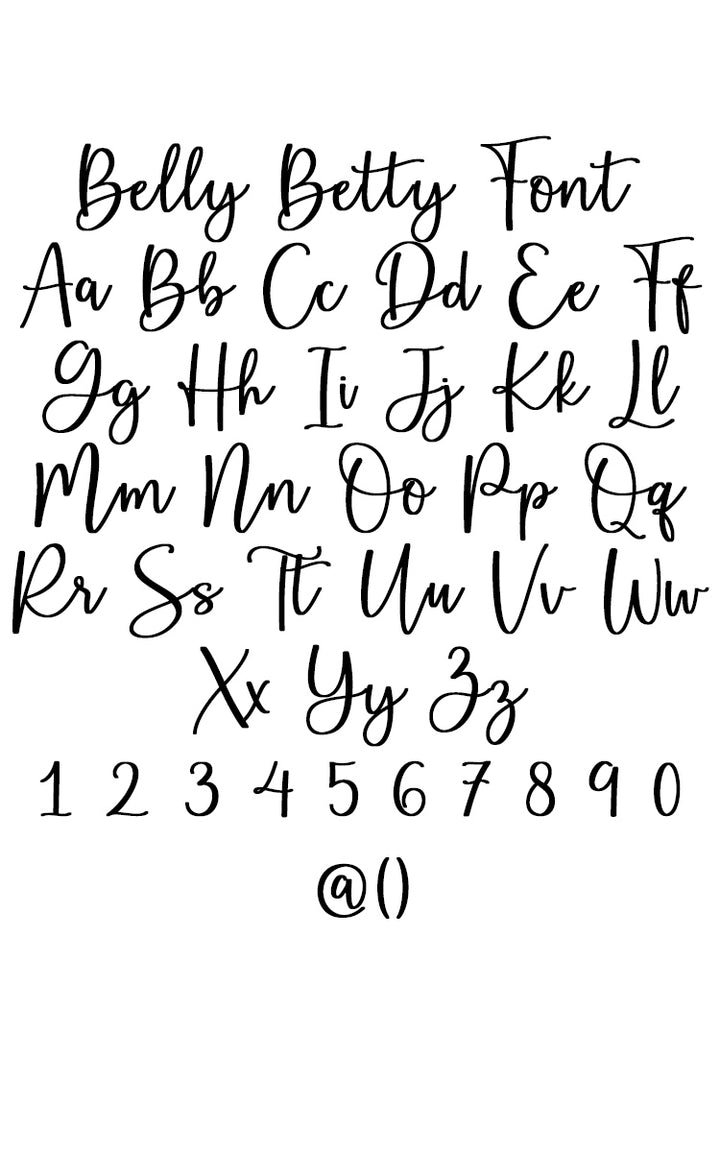 Belly Betty Font
Aa Bb Cc Dd Ee Ff
Gg Hh Ii Jj Kk Ll
Mm Nn Oo Pp Qq
Rr Ss Tt Uu Vv Ww
Xx Yy Zz
1 2 3 4 5 6 7 8 9 0
@()